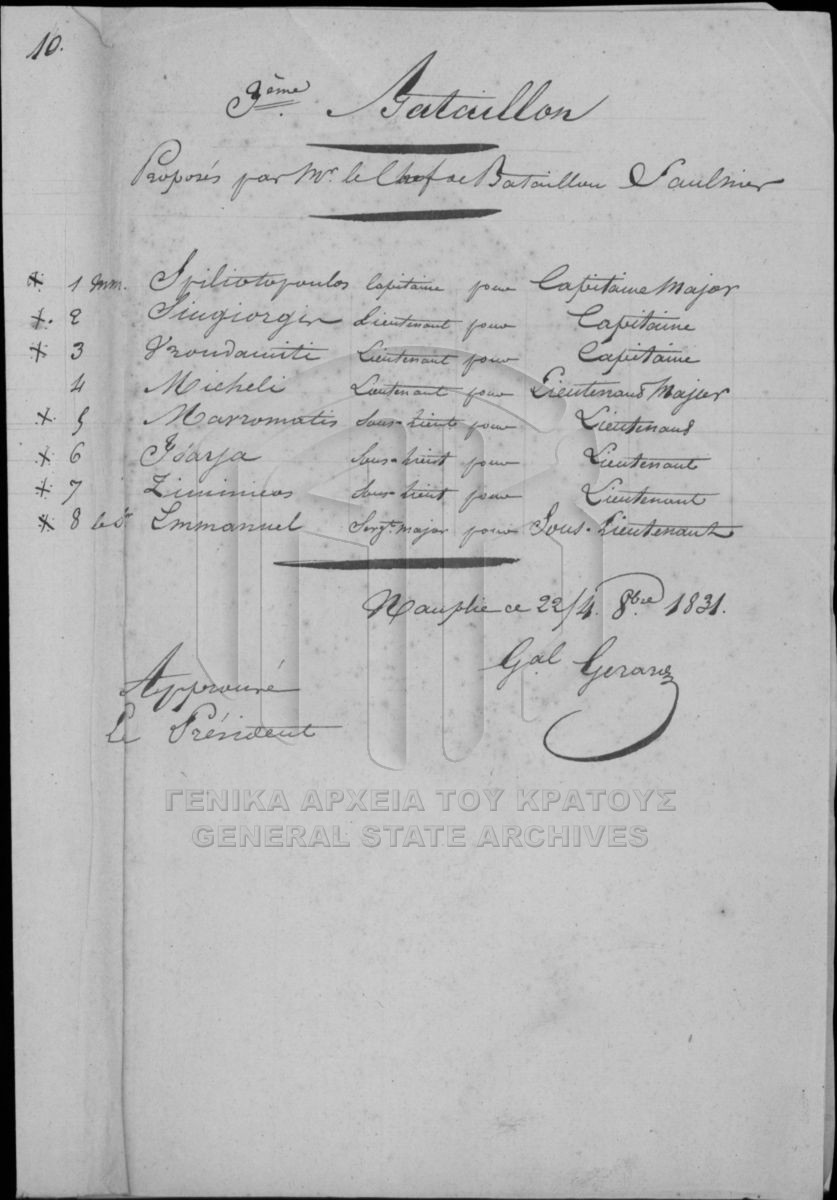 10.
3ème Bataillon
Proposés par Mr. le Chef de Bataillon Saulnier
1 Mm. Spiliotopoulos Capitaine pour Capitaine Major
2 Lieutenant pour Capitaine
3 Lieutenant pour Capitaine
4 Micheli Lieutenant pour Lieutenand Major
5 Mavromatis Sous-Lieut pour Lieutenand
6 Sous-Lieut pour Lieutenant
7 Sous-Lieut pour Lieutenant
8 le Sr Emmanuel Sergt. Major pour Sous-Lieutenant
Nauplie ce 22/4. 8bre 1831.
Gal Gerard
Approuvé
Le Président
ΓΕΝΙΚΑ ΑΡΧΕΙΑ ΤΟΥ ΚΡΑΤΟΥΣ
GENERAL STATE ARCHIVES